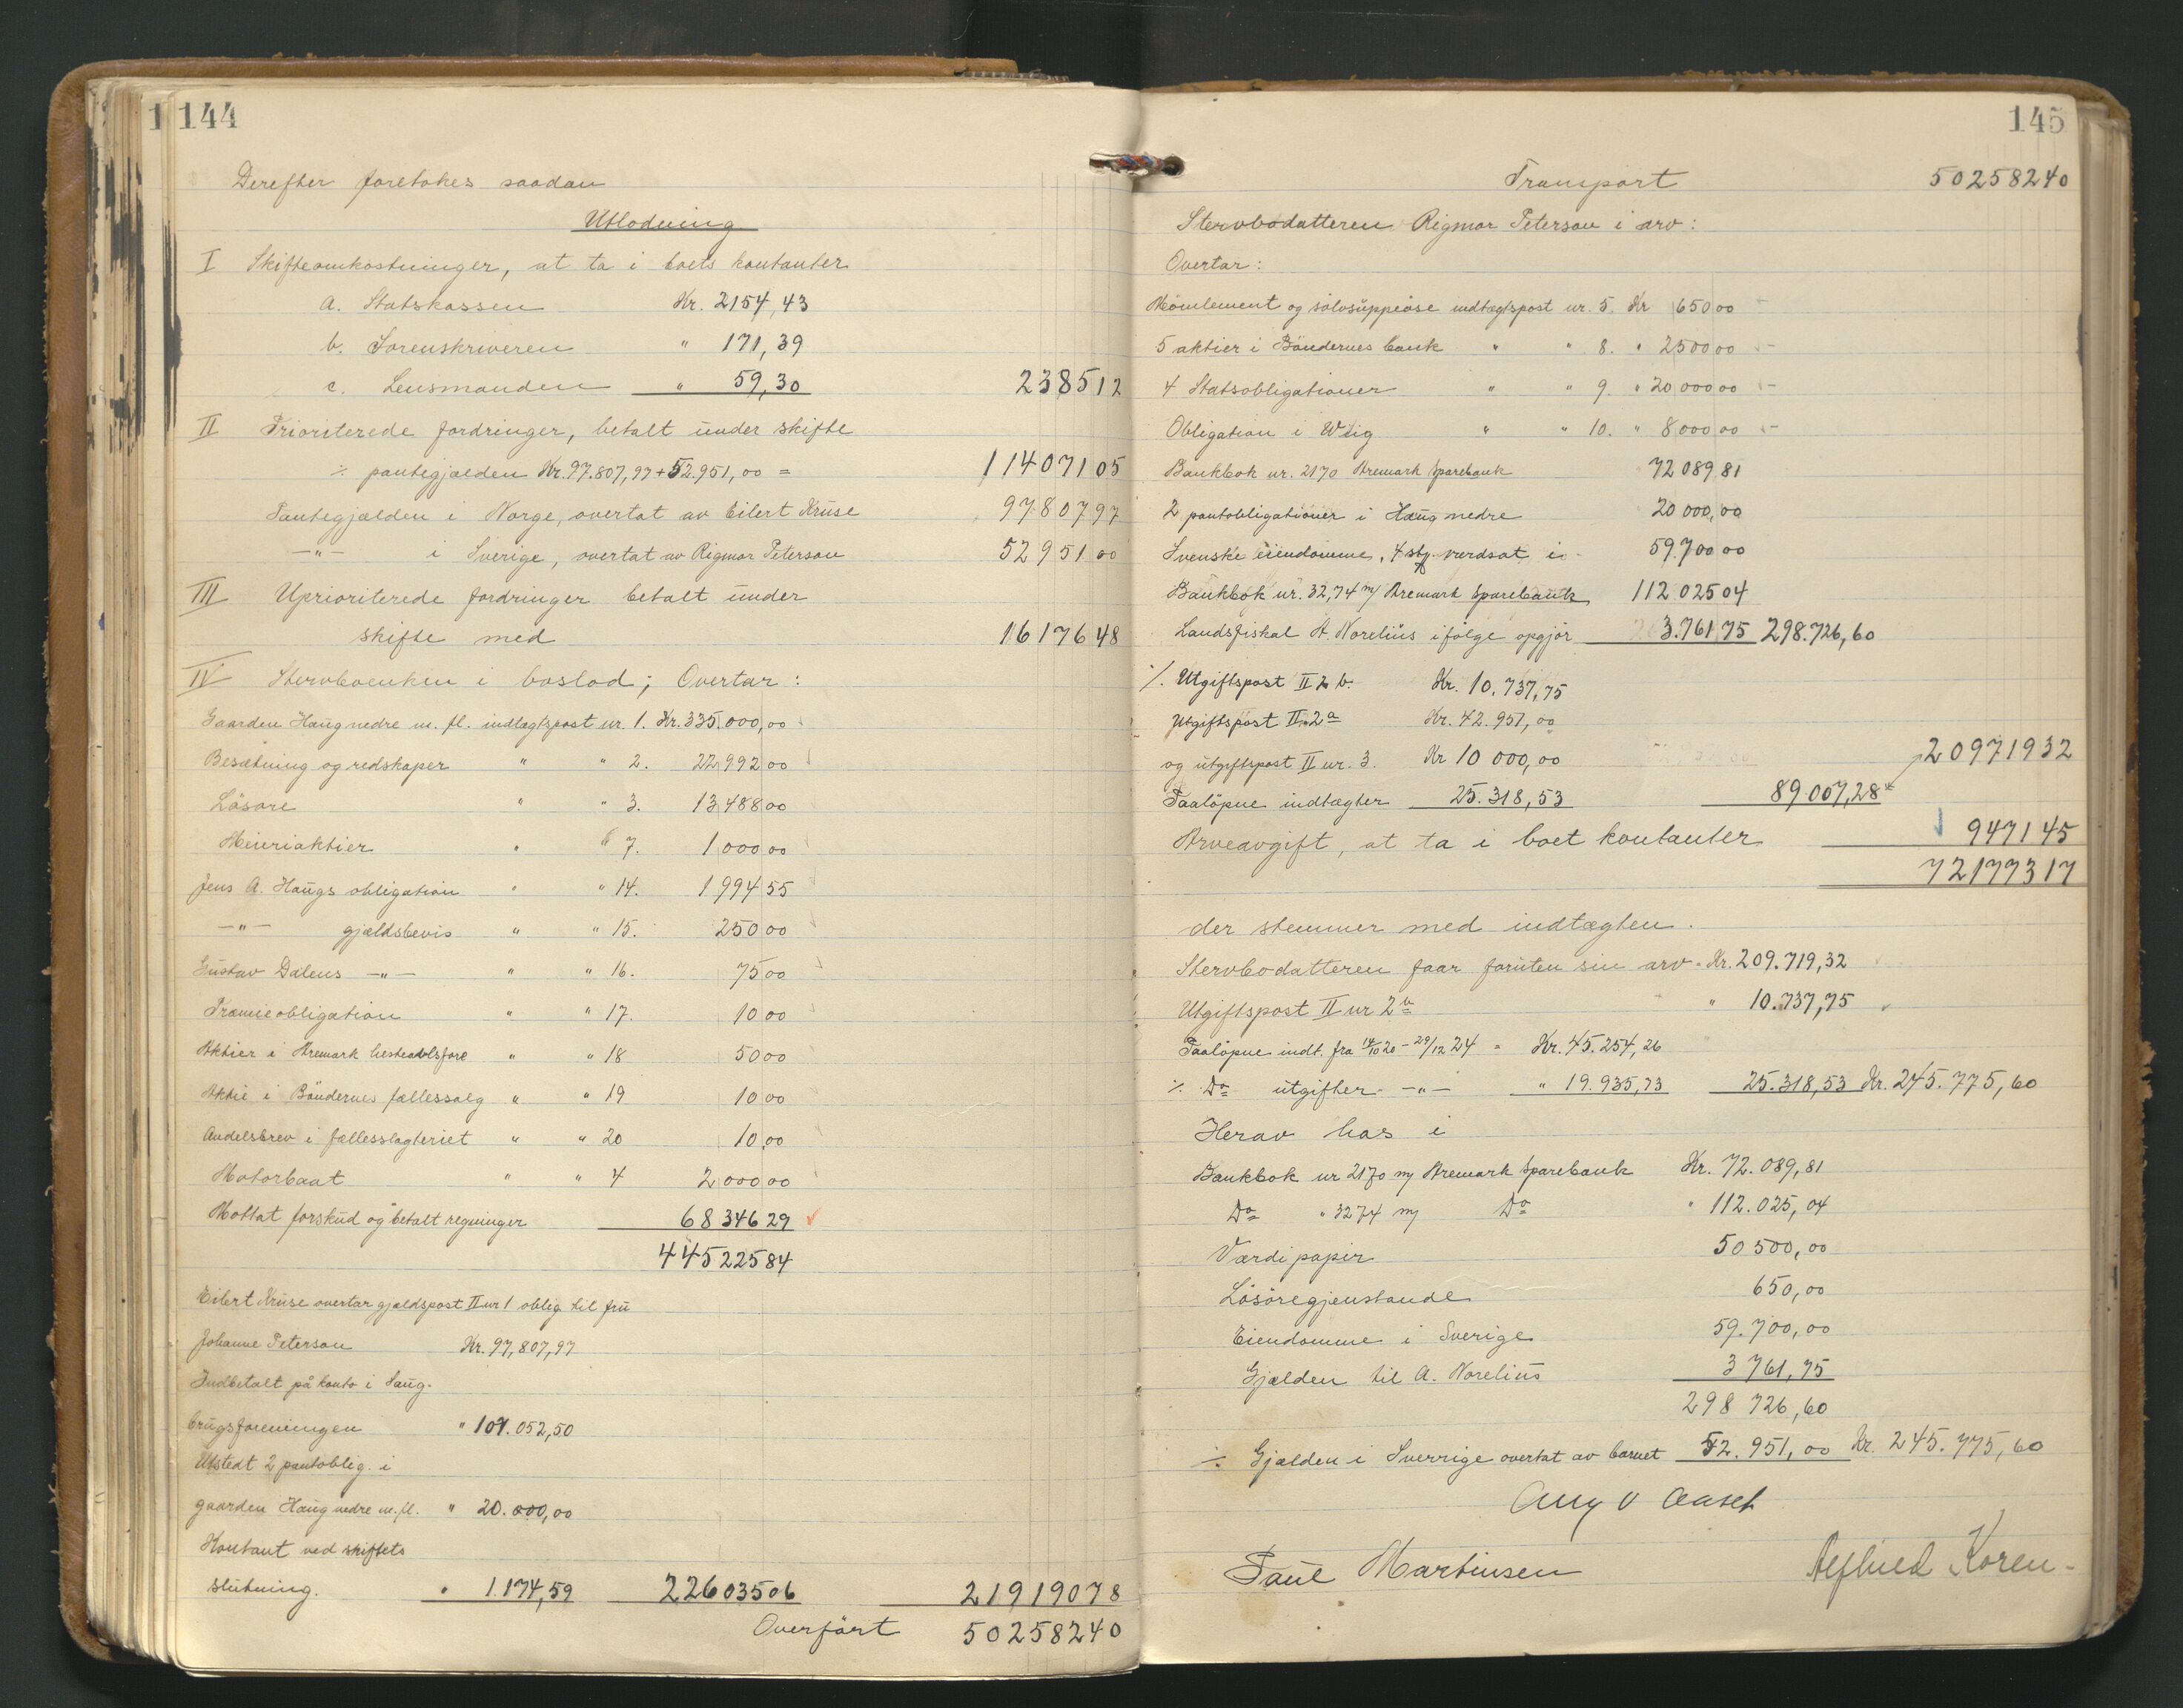 144
Derefter foretokes saadan
Utlodning
I Skifteomkostninger, at ta i boets kontanter
a. Statskassen Kr. 2154,43
b. Sorenskriveren " 171,39
c. Lensmanden " 59,30 2385 12
II Prioriterede fordringer, betalt under skifte
% pantegjælden Kr. 97.807,97 + 52.951,00 = 114071 05
Pantegjælden i Norge, overtat av Eilert Kruse 97807 97
—"— i Sverige, overtat av Rigmor Peterson 52951 00
III Uprioriterede fordringer betalt under
skifte med 16176 48
IV Stervboenken i boslod; Overtar:
Gaarden Haug nedre m. fl. indtægtspost nr. 1. Kr. 335.000,00
Besætning og redskaper " " 2. 22992 00
Løsøre " " 3. 13488 00
Meieriaktier " " 7. 1000 00
Jens A. Haugs obligation " " 14. 1994 55
—"— gjældsbevis " " 15. 250 00
Gustav Dalens —"— " " 16. 75 00
Præmieobligation " " 17. 10 00
Aktier i Aremark hesteavlsfore " " 18 50 00
Aktie i Bøndernes fællessalg " " 19 10 00
Andelsbrev i fællesslagteriet " " 20 10,00
Motorbaat " " 4 2000 00
Mottat forskud og betalt regninger 68346 29
445225 84
Eilert Kruse overtar gjældspost II nr 1 oblig til fru
Johanne Peterson Kr. 97,807,97
Indbetalt på konto i Saug-
brugsforeningen " 107.052,50
Utstedt 2 pantoblig. i
gaarden Haug nedre m. fl. " 20.000,00
Kontant ved skiftets
slutning. " 1.174,59 226035 06 219190 78
Overført 502582 40
145
Transport 502582 40
Stervbodatteren Rigmor Peterson i arv:
Overtar:
Møblement og sølvsuppeøse indtægtspost nr. 5. Kr 650 00
5 aktier i Bøndernes bank " " 8. " 2500 00
4 Statsobligationer " " 9. " 20,000 00
Obligation i Wiig " " 10. " 8000 00
Bankbok nr. 2170 Aremark Sparebank 72089 81
2 pantobligationer i Haug nedre 20 000,00
Svenske eiendomme, 4 stk. værdsat i 59.700 00
Bankbok nr. 32,74 m/ Aremark Sparebank 112 025 04
Landsfiskal A. Norelius ifølge opgjør 3.761 75 298.726,60
% Utgiftspost II 2 b. Kr. 10.737,75
Utgiftspost II 2a Kr. 42.951,00
og utgiftspost II nr. 3. Kr 10 000,00 209719 32
Paaløpne indtægter 25.318,53 89.007,28
Arveavgift, at ta i boet kontanter 9471 45
721773 17
der stemmer med indtægten.
Stervbodatteren faar foruten sin arv = Kr. 209.719,32
Utgiftspost II nr 2b " 10.737,75
Paaløpne indt. fra 14/10 20 - 29/12 24 = Kr. 45.254,26
% Do utgifter —"— " 19.935,73 25.318,53 Kr. 245.775,60
Herav has i
Bankbok nr 2170 m/ Aremark Sparebank Kr. 72.089,81
Do " 3274 m/ Do " 112.025,04
Værdipapir 50 500,00
Løsøregjenstande 650,00
Eiendomme i Sverige 59.700,00
Gjælden til A. Norelius 3 761,75
298 726,60
% Gjælden i Sverrige overtat av barnet 52.951,00 Kr. 245.775,60
Paul Martinsen Alfhild Koren